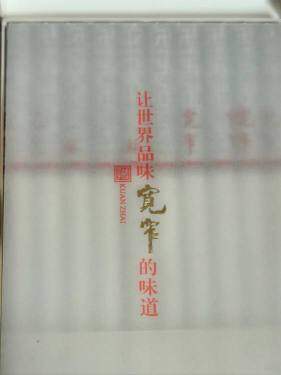 让世界品味宽窄的味道
KUAN ZHAI